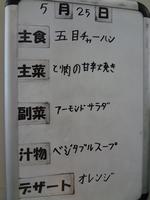 5月25日
主食 五目チャーハン
主菜 とり肉の甘辛焼き
副菜 アーモンドサラダ
汁物 ベジタブルスープ
デザート オレンジ